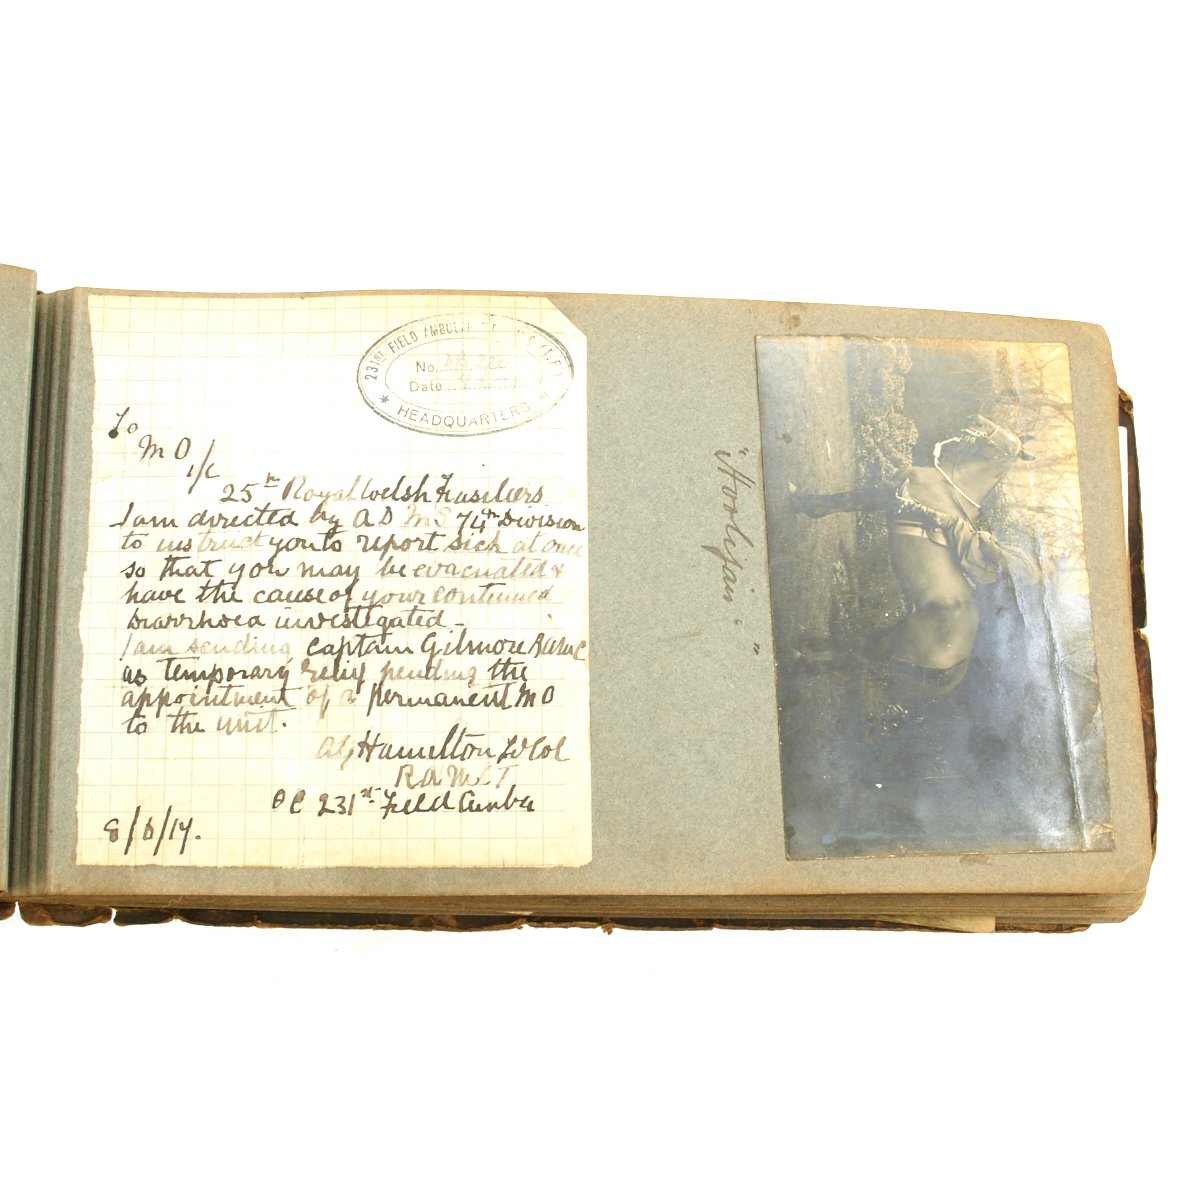 231ST FIELD AMBULA
No.
Date
HEADQUARTERS
To
M O
i/c
25th Royal Welsh Fusiliers
I am directed by A D M S 74th Division
to instruct you to report sick at once
so that you may be evacuated &
have the cause of your continued
Diarrhoea investigated -
I am sending Captain Gilmore RAMC
as temporary relief pending the
appointment of a permanent MO
to the unit.
Hamilton Lt Col
RAMCT
OC 231st Field Amb
8/6/17.
"Hoolifair"